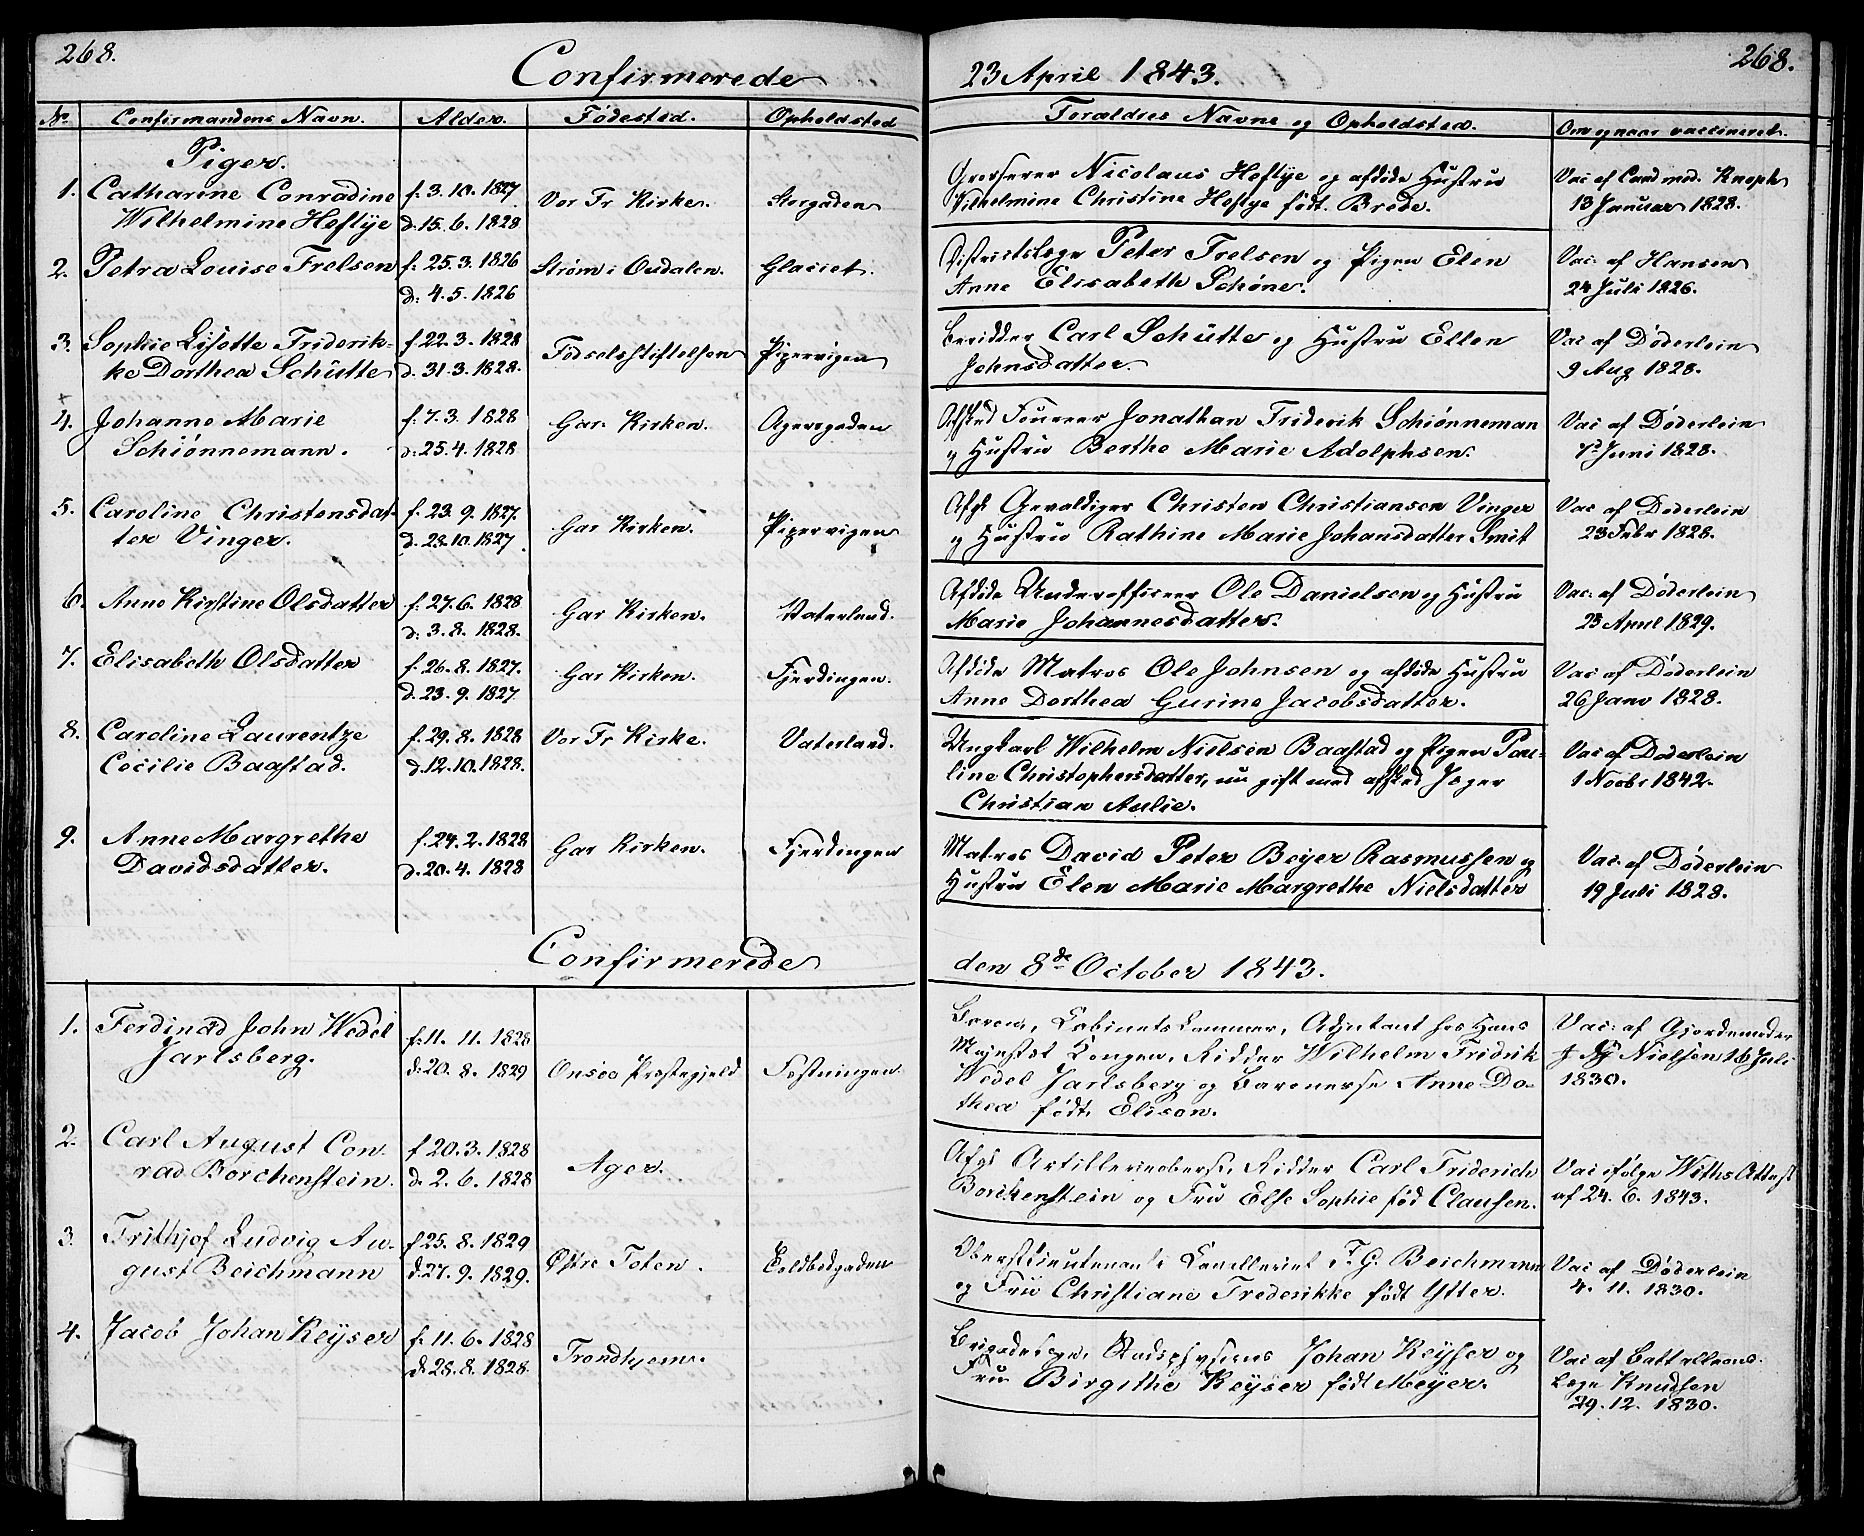 268.
Confirmerede
No Confirmandens Navn. Alder. Fødested. Opholdsted
Piger.
1. Catharine Conradine f. 3. 10. 1827. Vor Fr Kirke. Storgaden
Wilhelmine Heftye d. 15. 6. 1828
2. Petra Louise Frelsen f. 25. 3. 1826 Strøm i Ousdalen. Glaciet.
d. 4. 5. 1826
3. Sophie Lisette Friderik- f. 22. 3. 1828 Fødselsstiftelsen Pipervigen
ke Dorthea Schütte d. 31. 3. 1828.
4. Johanne Marie f. 7. 3. 1828 Gar Kirken. Agersgaden
Schiønnemann. d. 25. 4. 1828
5. Caroline Christensdat- f. 23. 9. 1827. Gar Kirken. Pipervigen
ter Vinger. d. 28. 10. 1827.
6. Anne Kirstine Olsdatter f. 27. 6. 1828 Gar Kirken. Vaterland.
d. 3. 8. 1828.
7. Elisabeth Olsdatter f. 26. 8. 1827. Gar Kirken. Fjerdingen.
d. 23. 9. 1827
8. Caroline Laurentze f. 29. 8. 1828 Vor Fr Kirke. Vaterland.
Cecilie Baastad. d. 12. 10. 1828.
9. Anne Margrethe f. 24. 2. 1828 Gar Kirken. Fjerdingen
Davidsdatter. d. 20. 4. 1828
Confirmerede
1. Ferdinad John Wedel f. 11. 11. 1828
Jarlsberg. d. 20. 8. 1829 Onsøe Præstegjeld Festningen
2. Carl August Con- f 20. 3. 1828 Ager.
rad Borchenstein. d. 2. 6. 1828
3. Frithjof Ludvig Au- f 25. 8. 1829 Østre Toten. Toldbodgaden
gust Beichmann d. 27. 9. 1829.
4. Jacob Johan Keyser f. 11. 6. 1828 Trondhjem.
d. 28. 8. 1828.
23 April 1843. 268.
Forældres Navne og Opholdsted. Om og naar vaccineret.
Grosserer Nicolaus Heftye og afdøde Hustru Vac af Cand med. Knoph
Wilhelmine Christine Heftye født Brede. 13 Januar 1828.
Districtslæge Peter Frelsen og Pigen Elen Vac af Hansen
Anne Elisabeth Schøne. 24 Juli 1826.
Beridder Carl Schütte og Hustru Ellen Vac af Døderlein
Johnsdatter. 9 Aug 1828.
Afsked Fourer Jonathan Friderik Schiønneman Vac af Døderlein
og Hustru Berthe Marie Adolphsen. Juni 1828.
Afgl Gevaldiger Christen Christiansen Vinger Vac af Døderlein
og Hustru Kathine Marie Johansdatter Smit 23 Febr 1828.
Afdøde Underofficeer Ole Danielsen og Hustru Vac: af Døderlein
Marie Johannesdatter. 23 April 1829.
Afdøde Matros Ole Johnsen og afdøde Hustru Vac af Døderlein
Anne Dorthea Gurine Jacobsdatter. 26 Janv 1828.
Ungkarl Wilhelm Nielsen Baastad og Pigen Pau- Vac af Døderlein
line Christophersdatter, nu gift med afsked Jæger 1 Novbr 1842.
Christian Aulie.
Matros David Peter Beyer Rasmussen og Vac. af Døderlein
Hustru Elen Marie Margrethe Nielsdatter 19 Juli 1828.
den 8de October 1843.
Baron, Cabinets Kammer, Adjutant hos Hans Vac: af Gjordemoder
Majestæt Kongen, Ridder Wilhelm Fridrik Nielsen 16 Juli
Wedel Jarlsberg og Baronesse Anne Do- 1830.
thea født Elison.
Afgl Artillerieoberst, Ridder Carl Friderich Vac ifølge Withs Attest
Borchenstein og Fru Else Sophie fød Clausen. af 24. 6. 1843.
Oberstlieutenant i Cavalleriet F. G. Beichmann Vac af Døderlein
og Fru Christiane Frederikke født Ytter. 4. 11. 1830.
Brigadelæge, Stadsphysicus Johan Keyser og Vac af Batallions-
Fru Birgithe Keyser født Meyer. Læge Knudsen
29. 12. 1830.